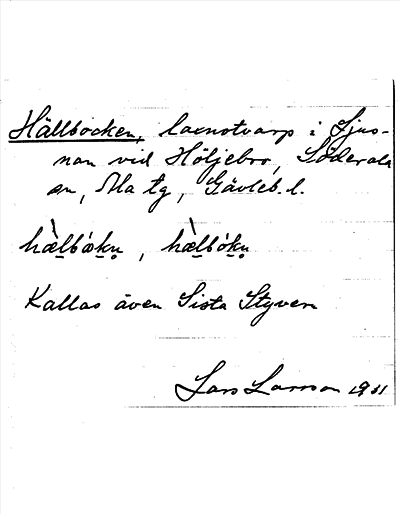 Hällbocken, laxnotvarp i Ljus-
nan vid Höljebro, Söderala
sn, Ala tg, Gävleb. l.
hæ̀lbɷ́kn̥, hæ̀lbókn̥
Kallas även Sista Styven
Lars Larsson 1931